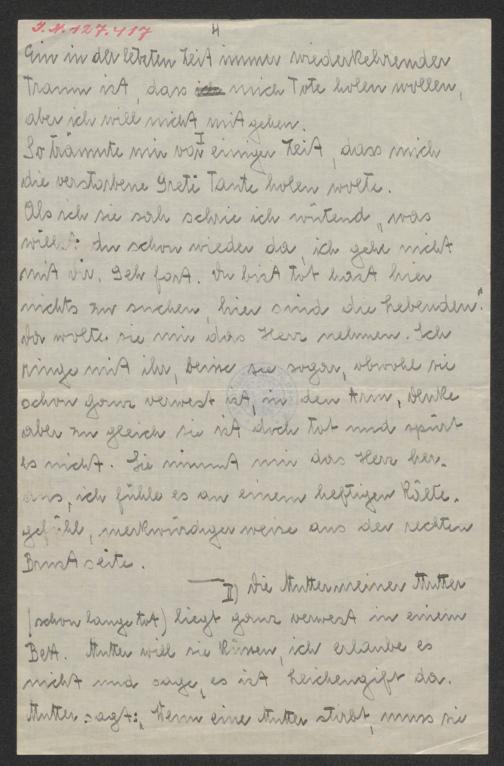 I.N. 127.417
4
Ein in der letzten Zeit immer wiederkehrender
Traum ist, dass mich Tote holen wollen,
aber ich will nicht mit gehen.
I
So träumte mir vor einigen Zeit, dass mich
die verstorbene Greti Tante holen wolte.
Als ich sie sah schrie ich wütend „was
willst du schon wieder da, ich gehe nicht
mit dir. Geh fort. Du bist tot hast hier
nichts zu suchen, hier sind die Lebenden."
Da wolte sie mir das Herz nehmen. Ich
ringe mit ihr, beisse sie sogar, obwohl sie
schon ganz verwest ist, in den Arm, denke
aber zu gleich sie ist doch tot und spürt
es nicht. Sie nimmt mir das Herz her-
aus, ich fühle es an einem heftigen Kälte-
gefühl, merkwürdiger weise aus der rechten
Brust seite.
II) Die Mutter meiner Mutter
(schon lange tot) liegt ganz verwest in einem
Bett. Mutter will sie küssen, ich erlaube es
nicht und sage, es ist Leichengift da.
Mutter sagt: „Wenn eine Mutter stirbt, muss sie